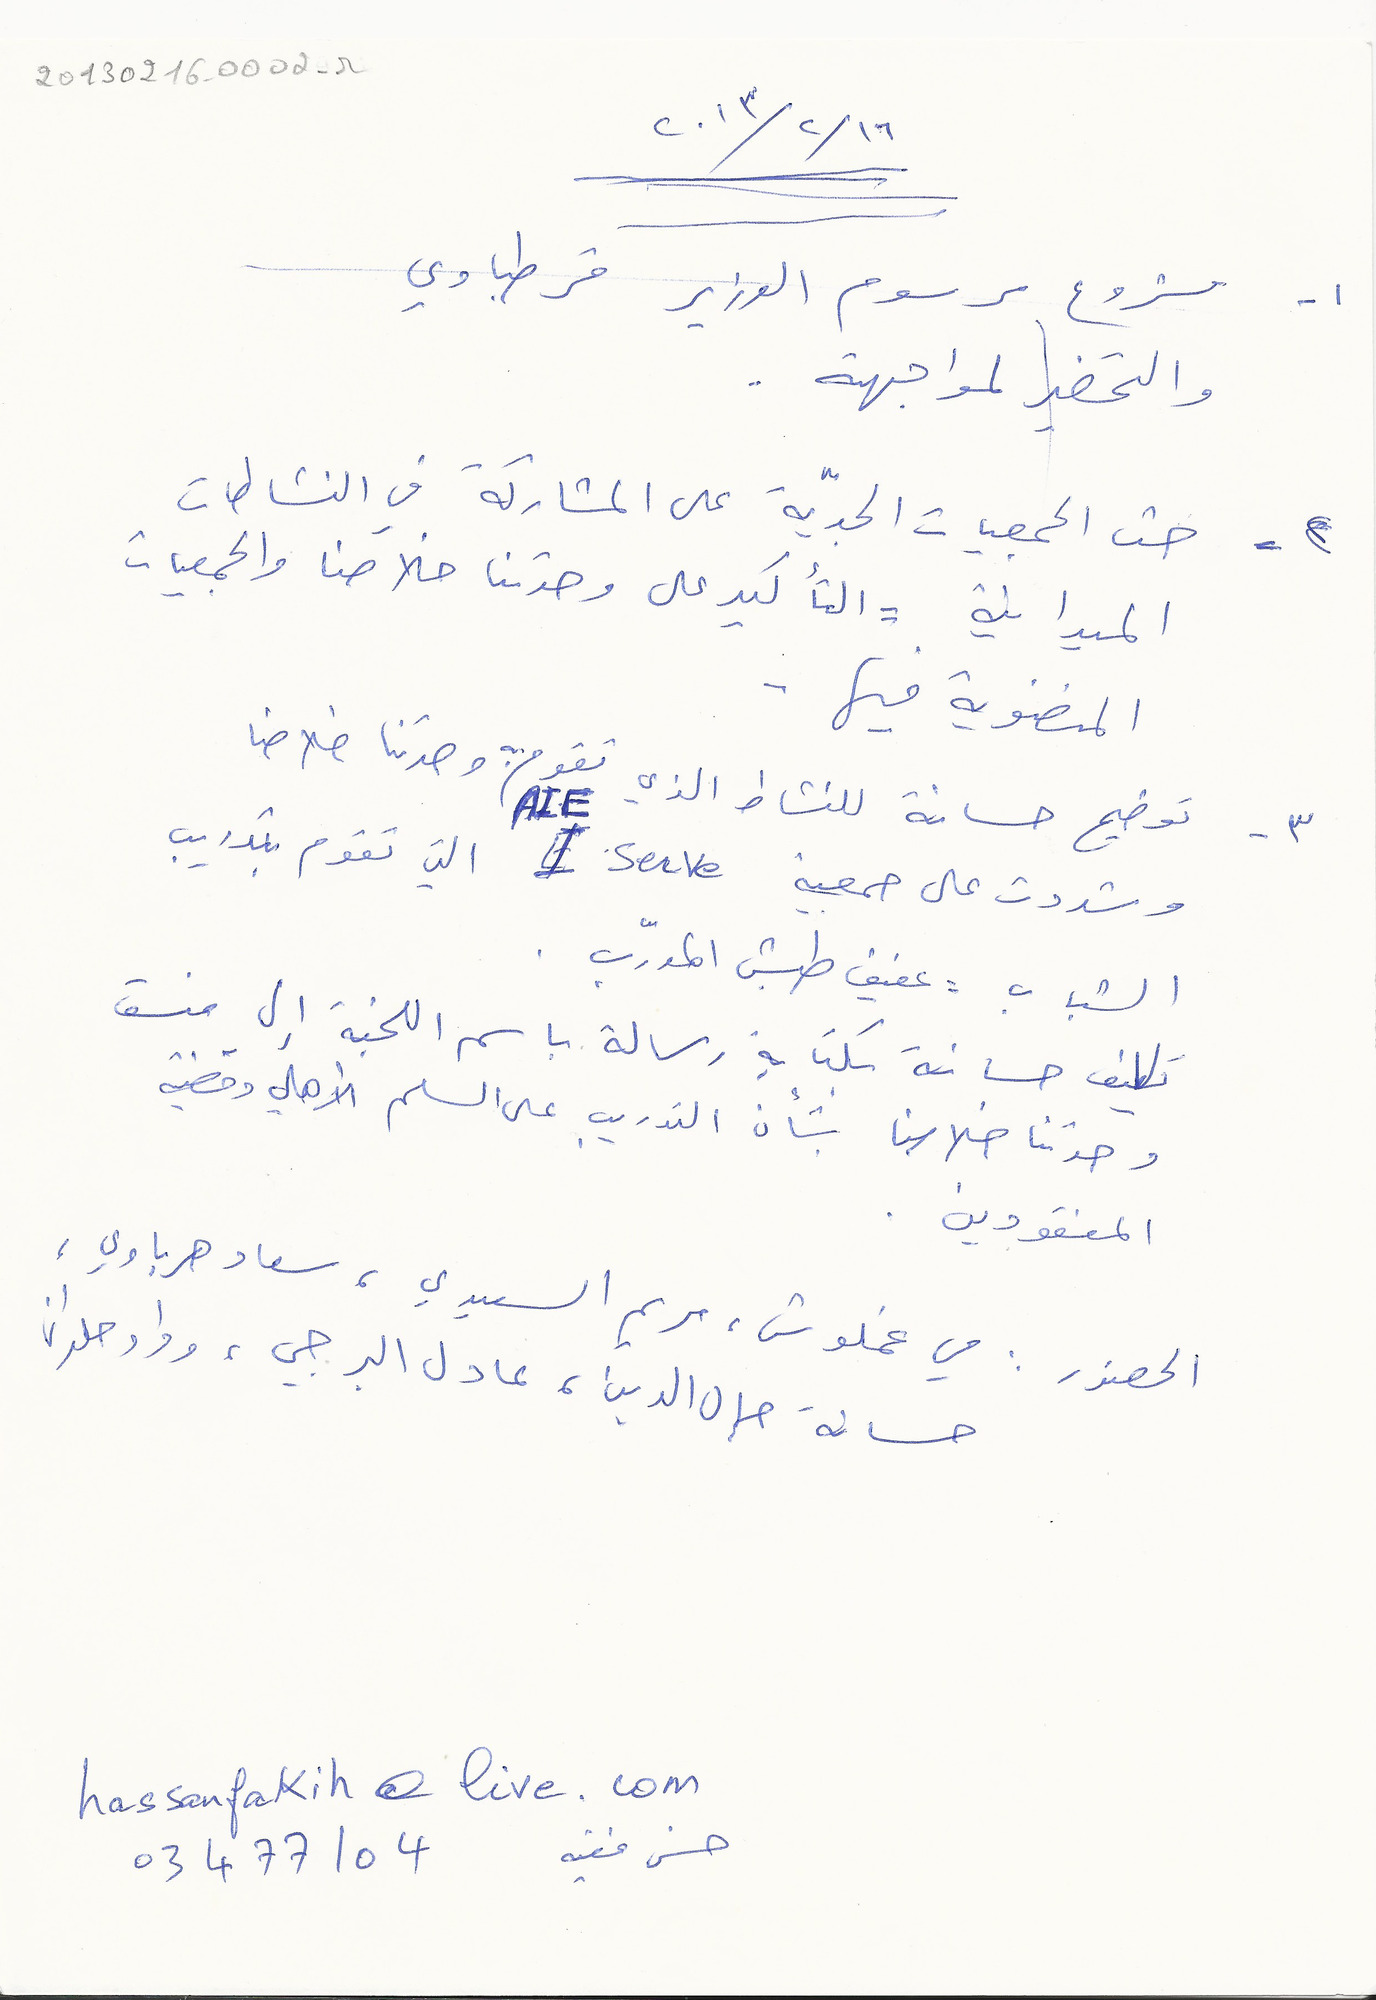 20130216-0002-r
٢٠١٣/٢/١٦
١- مشروع مرسوم الوزير قرطباوي
والتحضير لمواجهته .
٢- حث الجمعيات الجدّية على المشاركة في النشاطات
الميدانية = التأكيد على وحدتنا خلاصنا والجمعيات
المنضوية فيها -
٣- توضيح حسانة للنشاط الذي تقوم به وحدتنا خلاصنا
AIE
وشددت على جمعية I serve التي تقوم بتدريب
الشباب = عفيف طبش المدرّب .
تكليف حسانة بكتابة رسالة باسم اللجنة إلى منسق
وحدتنا خلاصنا بشأن التدريب على السلم الأهلي وقضية
المفقودين .
الحضور : مي عملوش، مريم السعيدي، سعاد هرباوي،
حسانة جمال الدين، عادل البرجي، وداد حلواني
hassanfakih@live.com
03477104 حسن فقيه